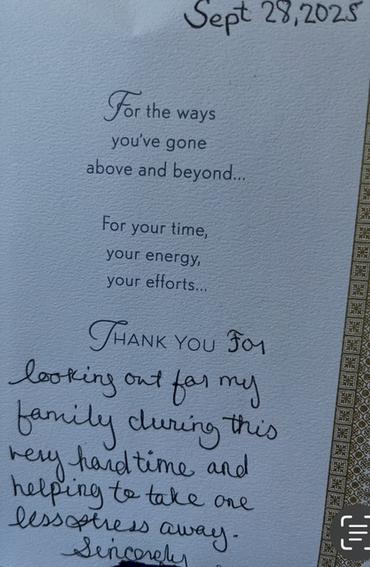 Sept 28, 2025
For the ways
you've gone
above and beyond...
For your time,
your energy,
your efforts...
THANK YOU For
looking out for my
family during this
very hard time and
helping to take one
less stress away.
Sincerely